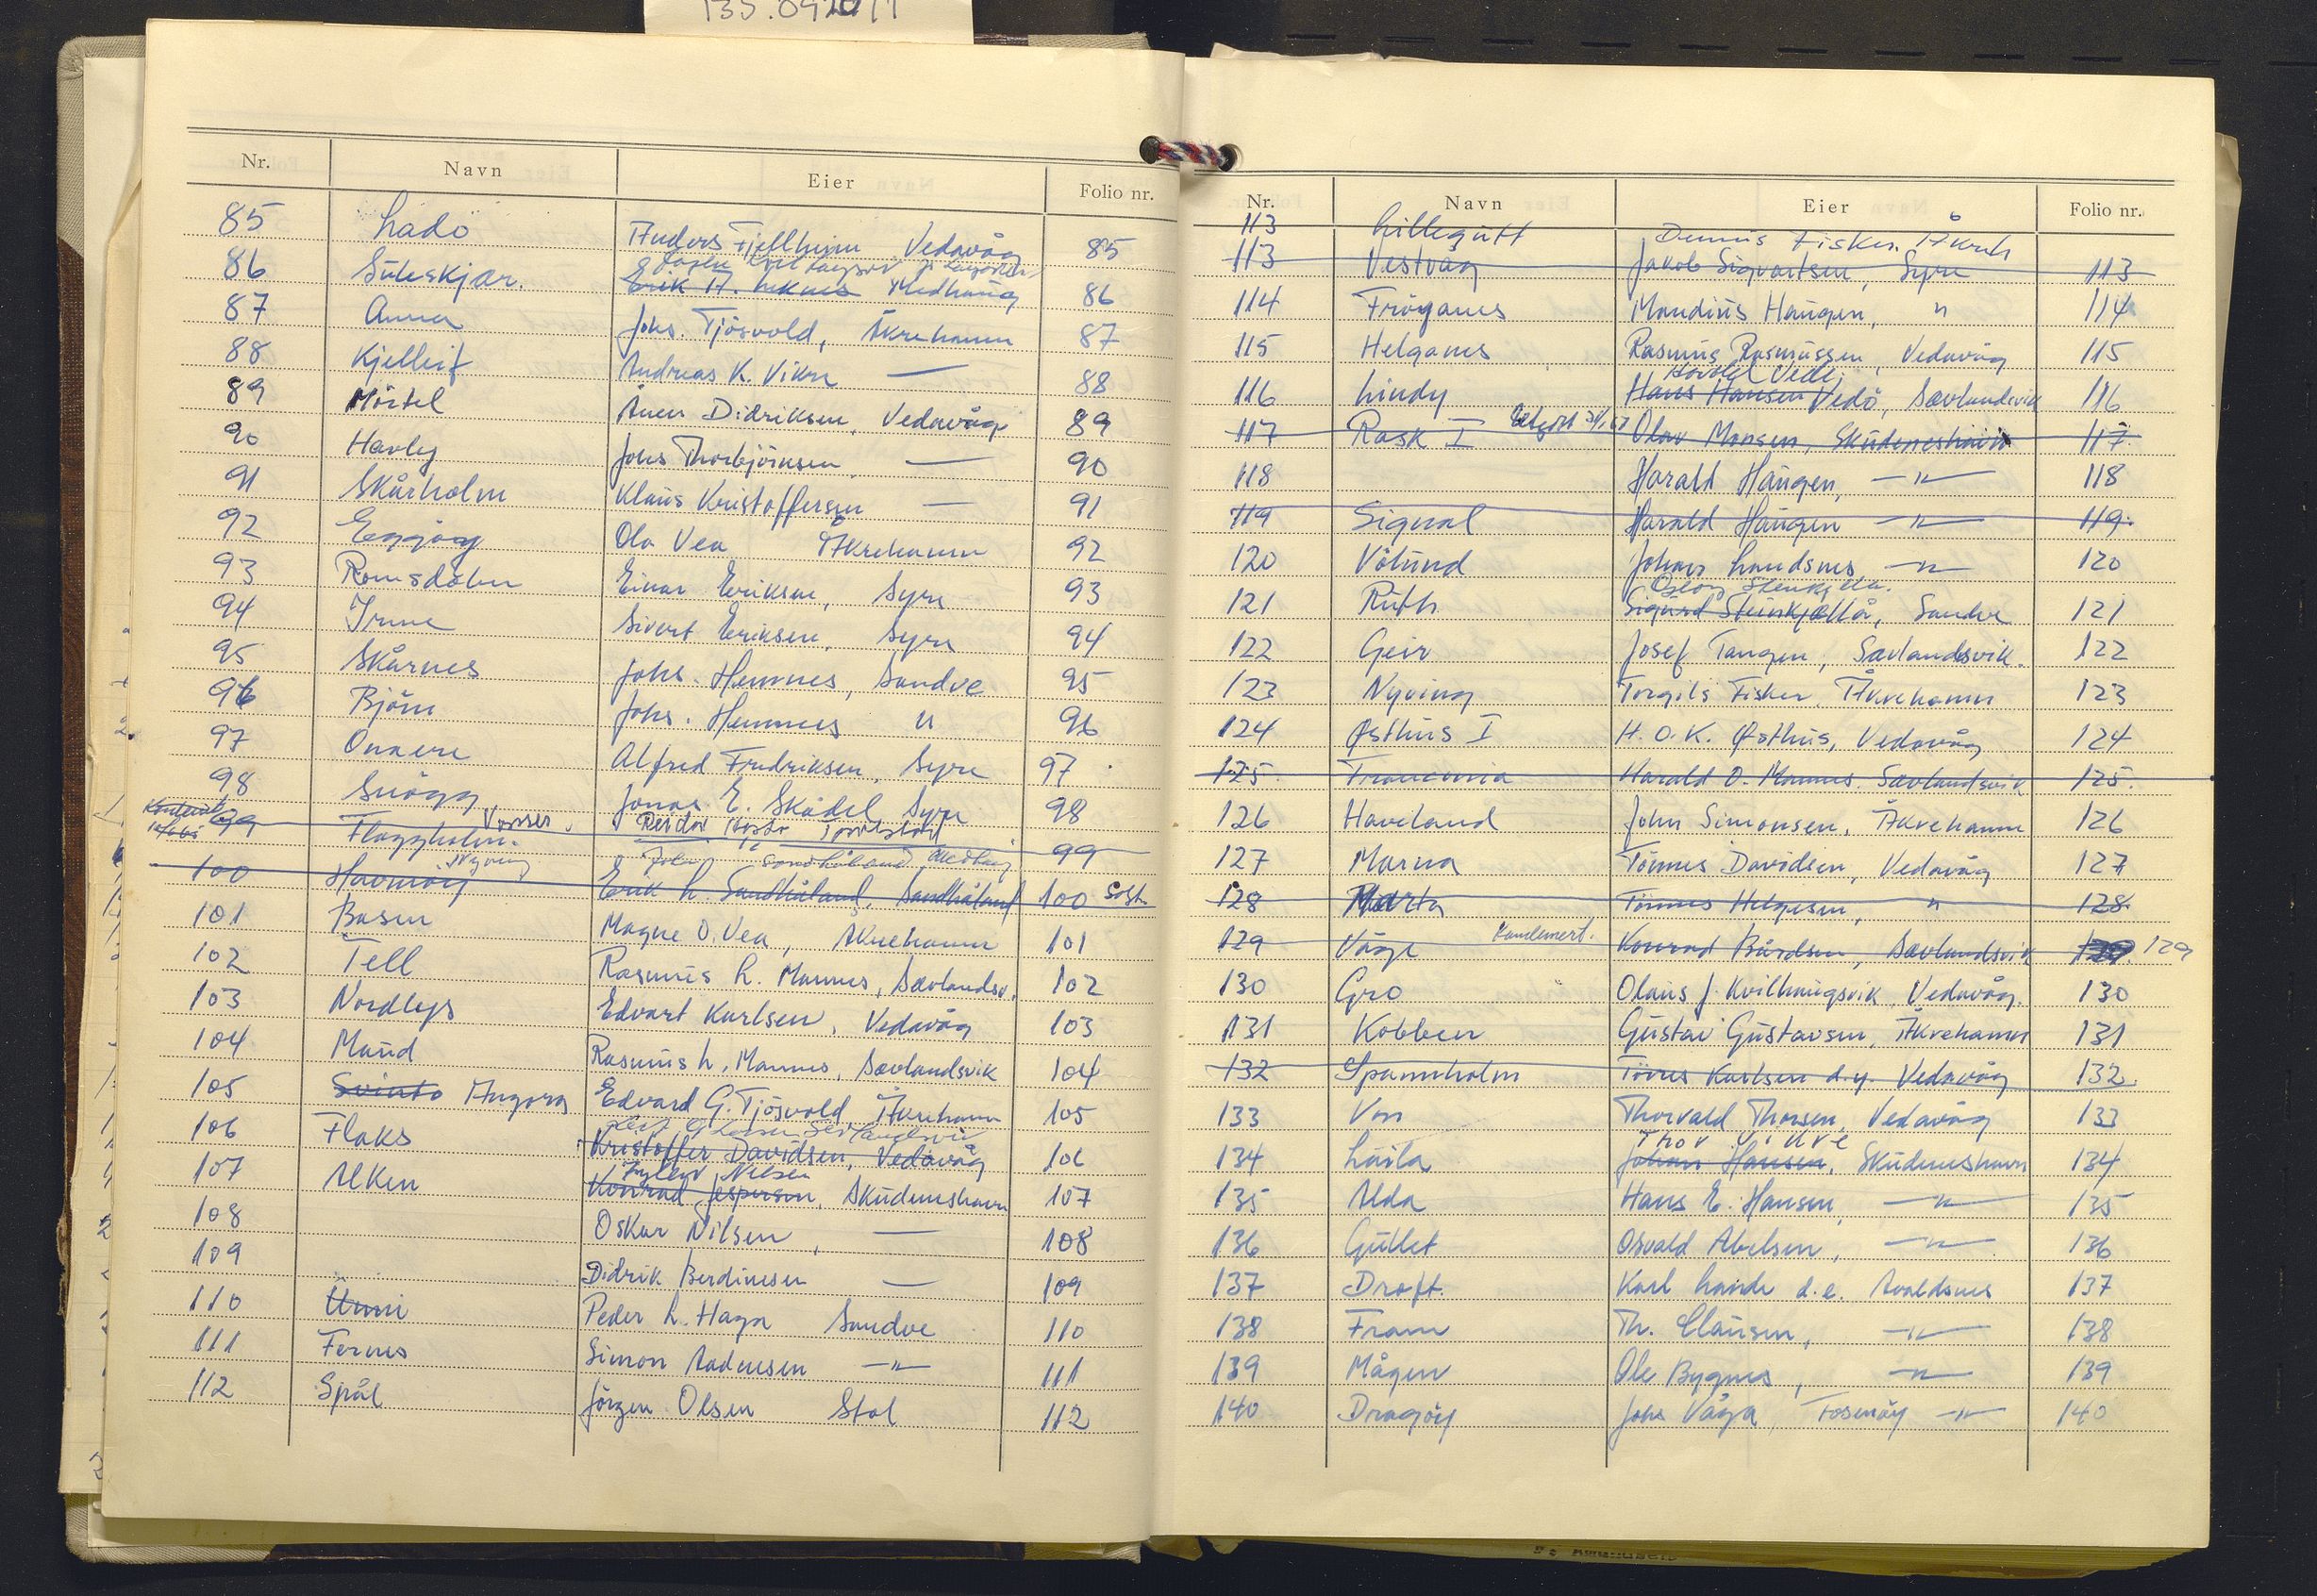 Nr. Navn Eier Folio nr.
85 Ladö Anders Fjellheim Vedavåg 85
86 Süleskjær. Erik H. Leknes Medhaug 86
87 Anna Johs. Tjösvold, Åkrehamn 87
88 Kjelleif Andreas K. Vikre — 88
89 Mörtel Didriksen, Vedavåg 89
90 Havley Johs Thorbjörnsen — 90
91 Skårholm Klaus Kristoffersen — 91
92 Eggöy Ola Vea Åkrehamn 92
93 Romsdalen Einar Eriksen, Syre 93
94 Irene Sivert Eriksen, Syre 94
95 Skårnes Johs. Hemnes, Sandve 95
96 Björn Johs. Hemnes " 96
97 Onnere Alfred Fredriksen, Syre 97
98 Snögg Jonas E. Skådel, Syre 98
99 Flaggholm. Vonser. Reidar 99
Nyving John Sandhåland
100 Havnöy Erik L. Sandhåland, Sandhåland 100 Solgt
101 Basen Magne O. Vea, Åkrehamn 101
102 Tell Rasmus L. Mannes, Sævlandsv. 102
103 Nordlys Edvart Karlsen, Vedavåg 103
104 Maud Rasmus L. Mannes, Sævlandsvik 104
105 Svinto Angora Edvard G. Tjösvold, Åkrehamn 105
106 Flaks Kristoffer Davidsen, Vedavåg 106
Nilsen
107 Alken Konrad Jespersen, Skudeneshavn 107
108 Oskar Nilsen, — 108
109 Didrik Berdinesen — 109
110 Unni Peder L. Haga Sandve 110
111 Fernes Simon Aadnesen —"— 111
112 Spål Jörgen Olsen Stol 112
Nr. Navn Eier Folio nr.
113 Lillegutt Dennis Fisker. Åkreh
113 Vestvåg Jakob Sigvartsen, Syre 113
114 Fröganes Mandius Haugen, " 114
115 Helganes Rasmus Rasmussen, Vedavåg 115
Harald Vedö
116 Lindy Hans Hansen Vedö, Sævlandsvik 116
117 Rask I Utgått Olav Monsen, Skudeneshavn 117
118 Harald Haugen, —"— 118
119 Signal Harald Haugen —"— 119.
120 Völund Johan Landsnes —"— 120
121 Ruth Sigurd Steinkjellå, Sandve 121
122 Geir Josef Tangen, Sævlandsvik. 122
123 Nyving Torgils Fisker, Åkrehamn 123
124 Østhus I H. O. K. Østhus, Vedavåg 124
125. Franconia Harald O. Mannes. Sævlandsvik 125.
126 Haveland John Simonsen, Åkrehamn 126
127 Marna Tönnes Davidsen, Vedavåg 127
128 Marta Tönnes Helgesen, " 128.
129 Våge Kondemnert. Konrad Bårdsen, Sævlandsvik 129
130 Gro Olaus J. Kvilhaugsvik, Vedavåg. 130
131 Kobben Gustav Gustavsen, Åkrehamn 131
132 Spannholm Tönnes Karlsen d.y. Vedavåg 132.
133 Von Thorvald Thorsen, Vedavåg 133
Thor Vikre
134 Laila Johan Hansen, Skudeneshavn 134
135 Alda Hans E. Hansen, —"— 135
136 Gullet Osvald Abelsen, —"— 136
137 Draft. Karl Lande d.e. Avaldsnes 137
138 Fram Th. Clausen, —"— 138
139 Mågen Ole Bygnes, —"— 139
140 Dragöy Johs Våga, Fosenöy —"— 140